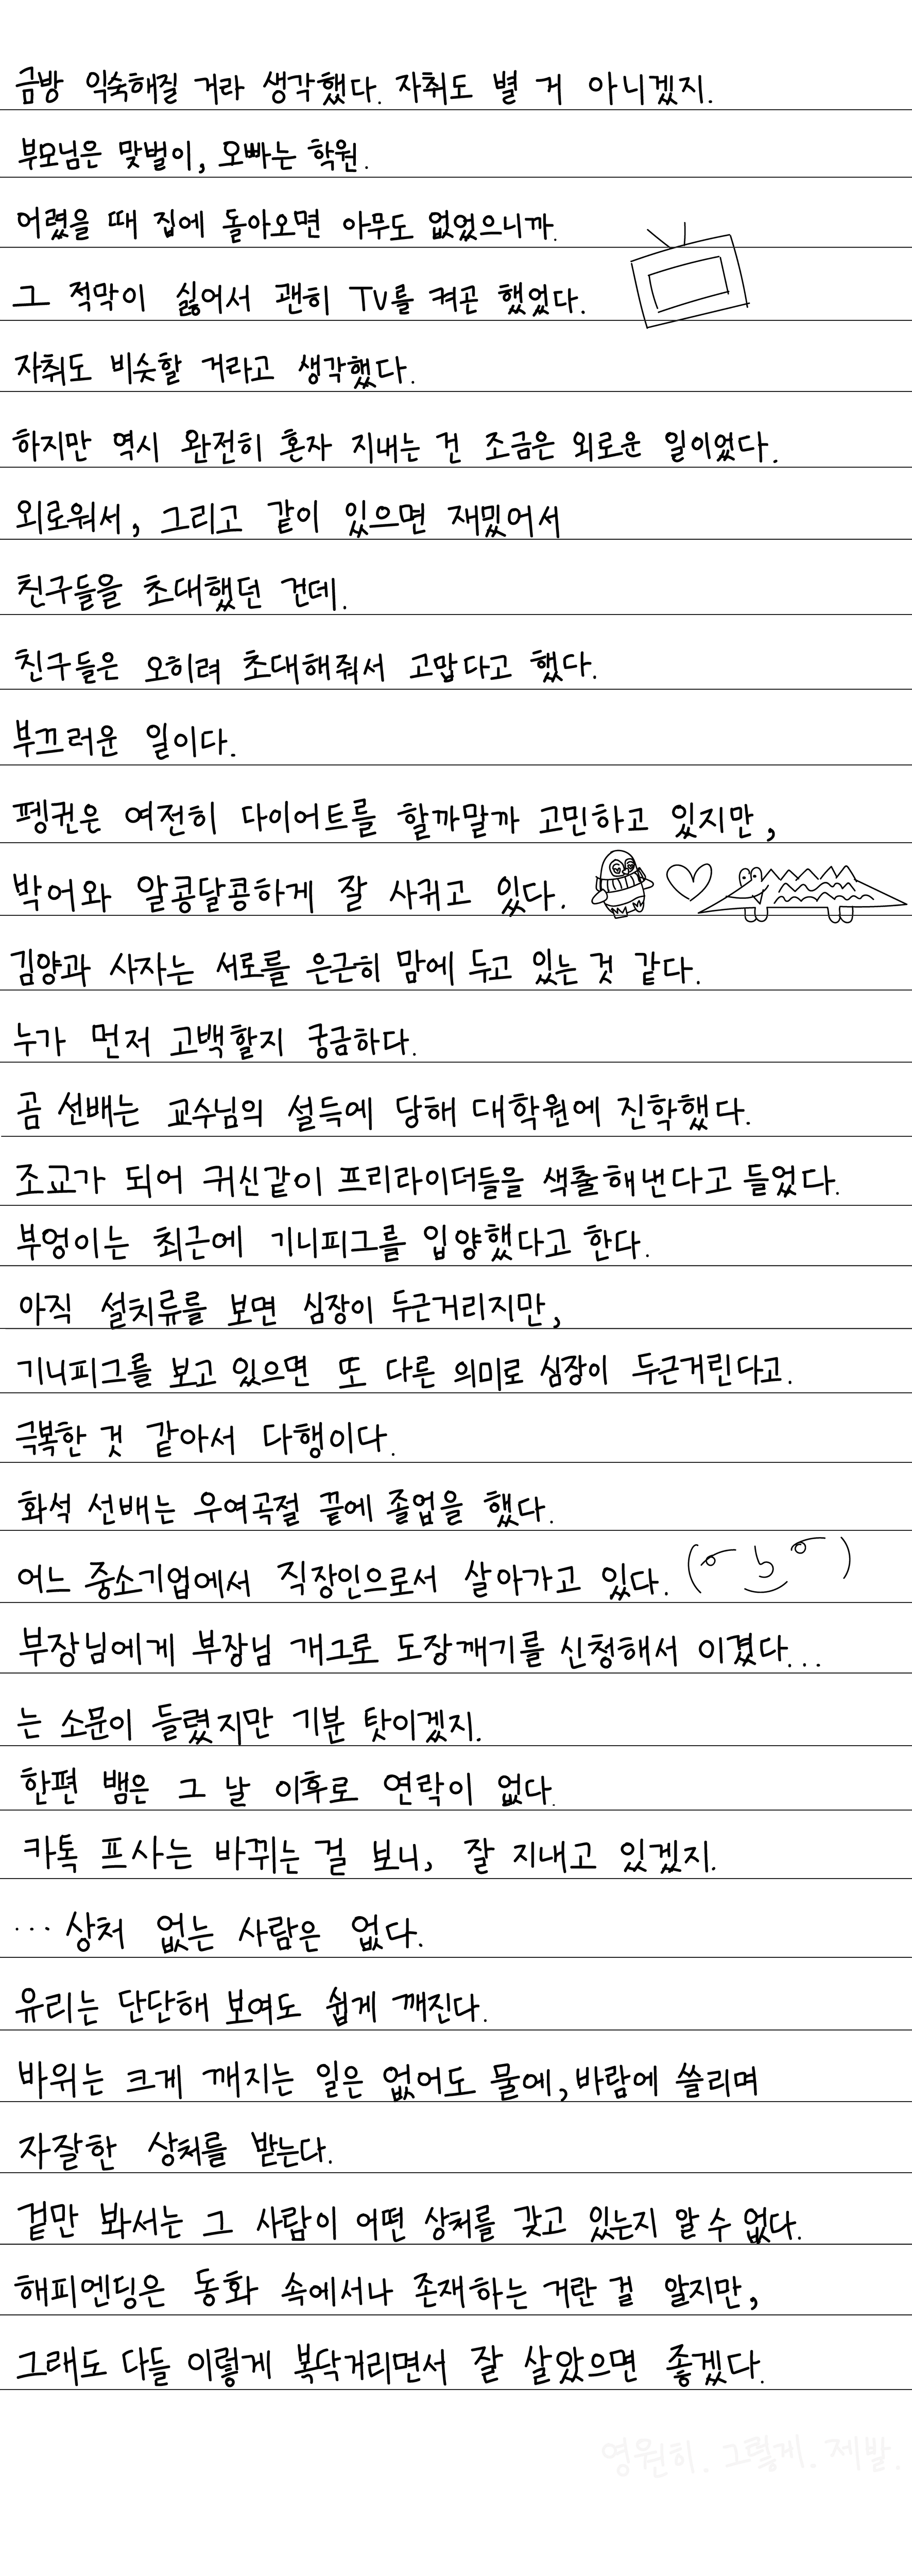 금방 익숙해질 거라 생각했다. 자취도 별 거 아니겠지.
부모님은 맞벌이, 오빠는 학원.
어렸을 때 집에 돌아오면 아무도 없었으니까.
그 적막이 싫어서 괜히 TV를 켜곤 했었다.
자취도 비슷할 거라고 생각했다.
하지만 역시 완전히 혼자 지내는 건 조금은 외로운 일이었다.
외로워서, 그리고 같이 있으면 재밌어서
친구들을 초대했던 건데.
친구들은 오히려 초대해줘서 고맙다고 했다.
부끄러운 일이다.
펭귄은 여전히 다이어트를 할까말까 고민하고 있지만,
박어와 알콩달콩하게 잘 사귀고 있다.
김양과 사자는 서로를 은근히 맘에 두고 있는 것 같다.
누가 먼저 고백할지 궁금하다.
곰 선배는 교수님의 설득에 당해 대학원에 진학했다.
조교가 되어 귀신같이 프리라이더들을 색출해낸다고 들었다.
부엉이는 최근에 기니피그를 입양했다고 한다.
아직 설치류를 보면 심장이 두근거리지만,
기니피그를 보고 있으면 또 다른 의미로 심장이 두근거린다고.
극복한 것 같아서 다행이다.
화석 선배는 우여곡절 끝에 졸업을 했다.
어느 중소기업에서 직장인으로서 살아가고 있다.
부장님에게 부장님 개그로 도장깨기를 신청해서 이겼다...
는 소문이 들렸지만 기분 탓이겠지.
한편 뱀은 그 날 이후로 연락이 없다.
카톡 프사는 바뀌는 걸 보니, 잘 지내고 있겠지.
...상처 없는 사람은 없다.
유리는 단단해 보여도 쉽게 깨진다.
바위는 크게 깨지는 일은 없어도 물에, 바람에 쓸리며
자잘한 상처를 받는다.
겉만 봐서는 그 사람이 어떤 상처를 갖고 있는지 알 수 없다.
해피엔딩은 동화 속에서나 존재하는 거란 걸 알지만,
그래도 다들 이렇게 복닥거리면서 잘 살았으면 좋겠다.
영원히. 그렇게. 제발.